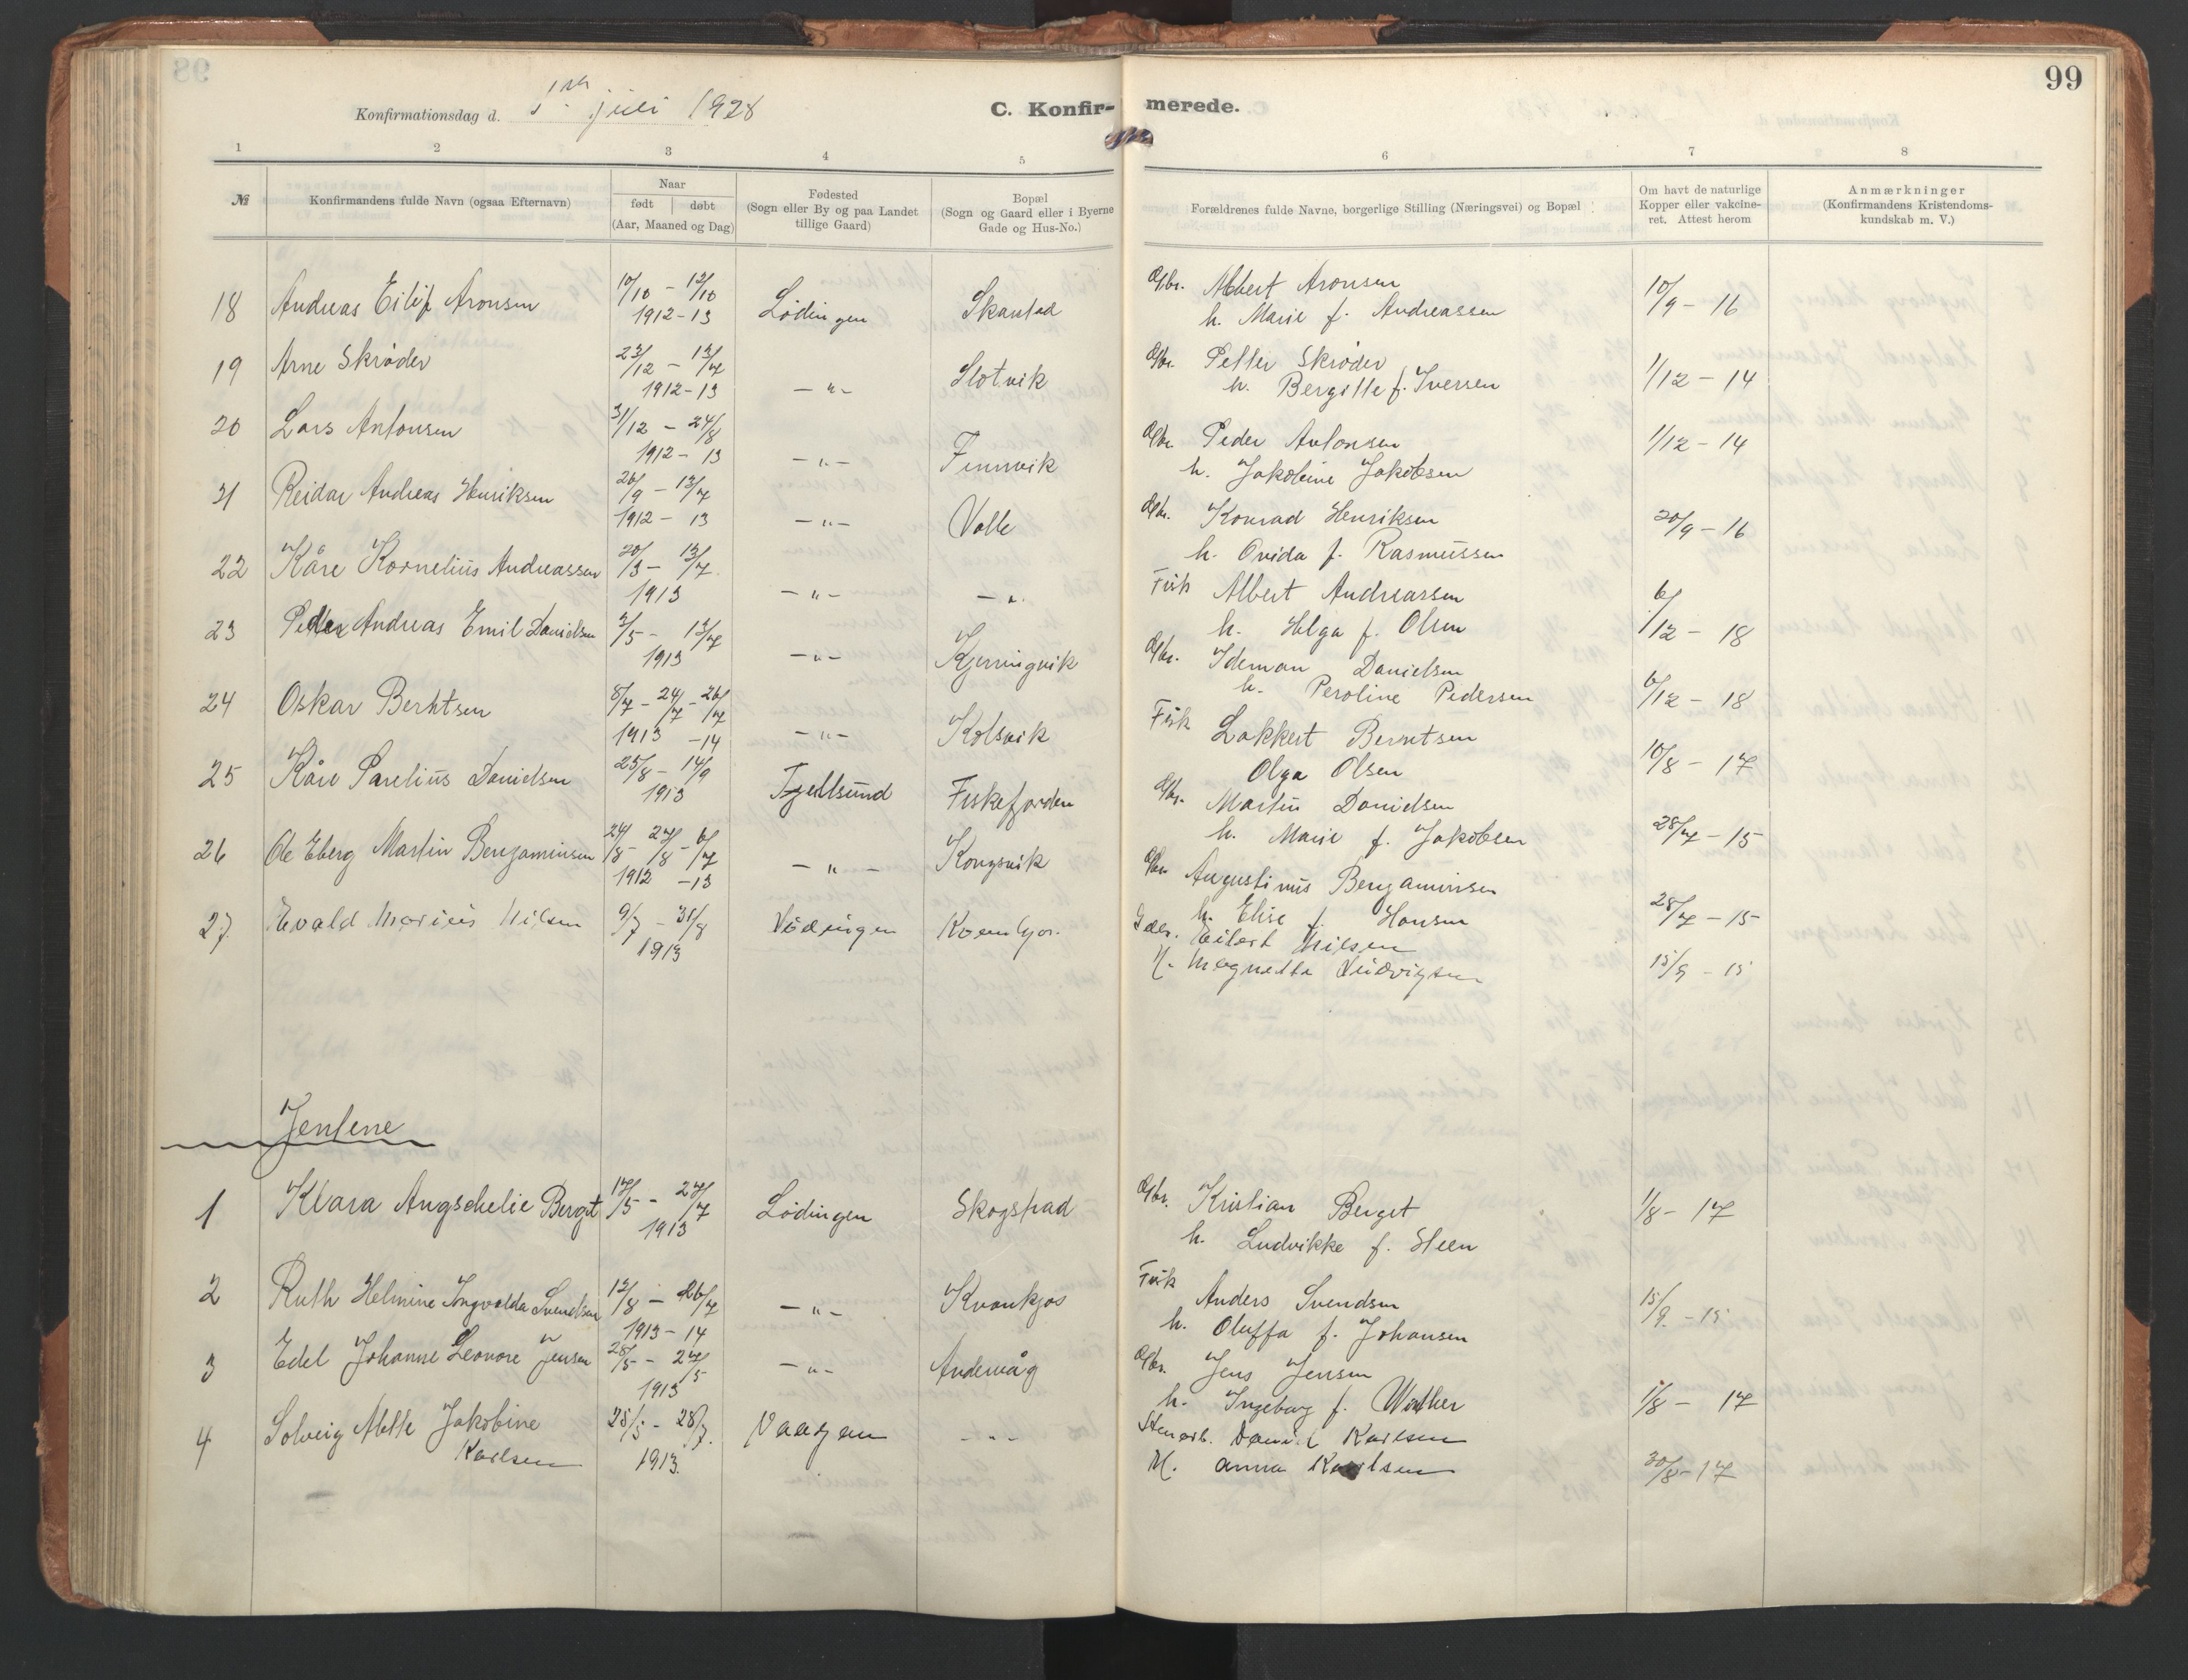 99
Konfirmationsdag d. 1ste juli 1928
C. Konfir- merede.
1 2 3 4 5 6 7 8
№
Konfirmandens fulde Navn (ogsaa Efternavn)
Naar
født døbt
(Aar, Maaned og Dag)
Fødested
(Sogn eller By og paa Landet
tillige Gaard)
Bopæl
(Sogn og Gaard eller i Byerne
Gade og Hus-No.)
Forældrenes fulde Navne, borgerlige Stilling (Næringsvei) og Bopæl
Om havt de naturlige
Kopper eller vakcine-
ret. Attest herom
Anmærkninger
(Konfirmandens Kristendoms-
kundskab m. V.)
18 Andreas Eilif Aronsen 10/10 - 12/10 Lødingen Skanstad Gbr. Albert Aronsen 10/9 - 16
1912-13 h. Marie f. Andreassen
19 Arne Skrøder 23/12 - 13/7 -"- Slotvik Gbr. Petter Skrøder 1/12 - 14
1912-13 h. Bergitte f. Iversen
20 Lars Antonsen 31/12 - 24/8 -"- Finnvik Gbr. Peder Antonsen 1/12 - 14
1912-13 h. Jakobine Jakobsen
21 Reidar Andreas Henriksen 26/9 - 13/7 -"- Valle Gbr. Konrad Henriksen 20/9 - 16
1912-13 h. Ovida f. Rasmussen
22 Kåre Kornelius Andreassen 20/3 - 13/7 -"- -"- Fisk Albert Andreassen 6/12 - 18
1913 h. Helga f. Olsen
23 Peder Andreas Emil Danielsen 3/5 - 13/7 -"- Kjerringvik Gbr. Ideman Danielsen 6/12 - 18
1913 h. Peroline Pedersen
24 Oskar Berntsen 8/7 - 24/7 - 26/7 -"- Kolsvik Fisk Lakkert Berntsen 10/8 - 17
1913 -14 Olga Olsen
25 Kåre Parelius Danielsen 25/8 - 14/9 Fjellsund Fiskefjorden Gbr. Martin Danielsen 28/7 - 15
1913 h. Marie f. Jakobsen
26 Ole Eberg Martin Benjaminsen 24/8 - 27/8 - 6/7 -"- Kongsvik Gbr. Augustinus Benjaminsen 28/7 - 15
1912 -13 h. Elise f. Hansen
27. Evald Marius Nilsen 9/7 - 31/8 Lødingen Eilert Nilsen 15/9 - 15
1913 H. Magnella Ludvigsen
Jentene
1 Klara Angschelie Berget 17/5 - 27/7 Lødingen Skogstad Gbr. Kristian Berget 1/8 - 17
1913 h. Ludvikke f. Steen
2 Ruth Helmine Ingvalda Svendsen 12/8 - 26/7 -"- Kvankjos Fisk Anders Svendsen 15/9. - 15
1913-14 h. Oluffa f. Johansen
3 Edel Johanne Leonore Jensen 28/5 - 27/5 -"- Andervåg Gbr. Jens Jensen 1/8 - 17
1913 h. Ingeborg f. Winther
4 Solveig Mette Jakobine 25/5 - 28/7. Vaagan -"- Stenarb. Daniel Karlsen 30/8 - 17
Karlsen 1913. H. Anna Karlsen